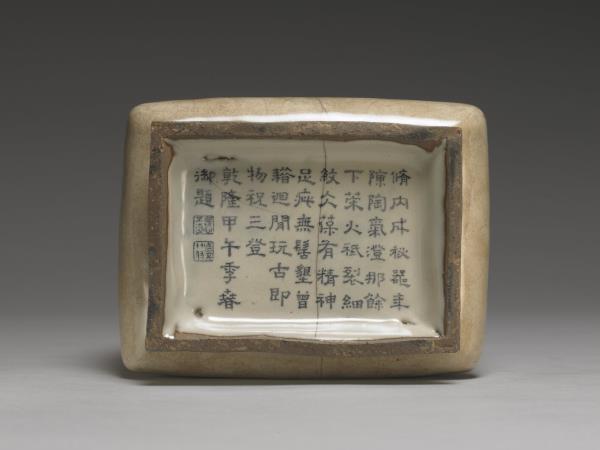 脩內成秘器年
陳陶氣澄那餘
下策火祗裂細
紋仌葆有精神
足疵無髺墾曾
藉迴閒玩古即
物祝三登
乾隆甲午季春
御題